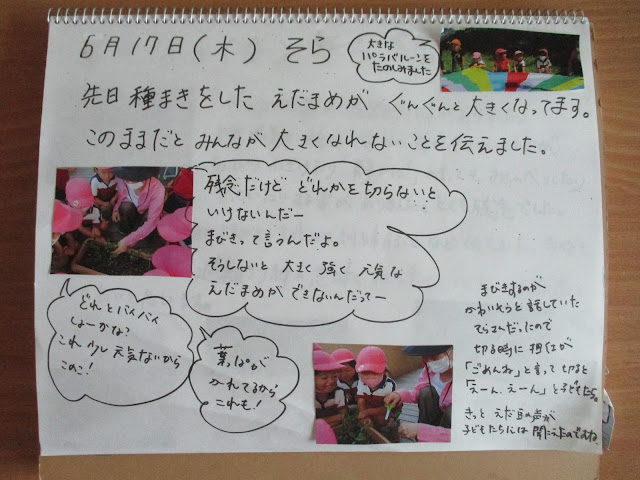 6月17日(木) そら
大きな
パラバルーンを
たのしみました
先日 種まきをした えだまめが ぐんぐんと大きくなってます。
このままだと みんなが 大きくなれないことを伝えました。
残念だけど どれかを切らないと
いけないんだー
まびきって言うんだよ。
そうしないと 大きく 強く 元気な
えだまめが できないんだってー
どれとバイバイ
しよーかな?
これ 少し 元気ないから
これ!
葉っぱが
かれてるから
これも!
まびきするのが
かわいそうと話していた
そらさんだったので
切る時に 担任が
「ごめんね」と言って切ると
「えーん、えーん」と子どもたち。
きっと えだ豆の声が
子どもたちには 聞こえたのですね